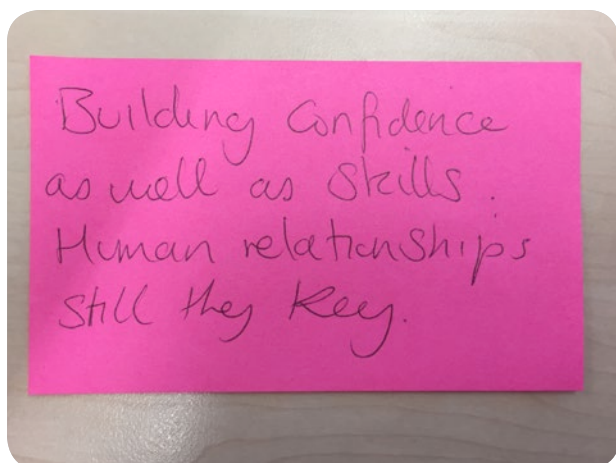 Building Confidence
as well as Skills.
Human relationships
still they Key.